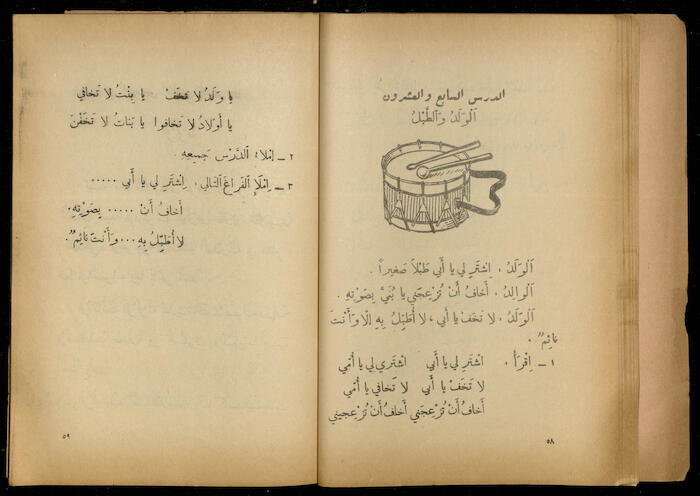 الدرس السابع والعشرون
اَلْوَلَدُ وَالطَّبْلُ
اَلْوَلَدُ : اِشْتَرِ لِي يَا أَبِي طَبْلاً صَغِيراً .
اَلْوَالِدُ : أَخَافُ أَنْ تُزْعِجَنِي يَا بُنَيَّ بِصَوْتِهِ .
اَلْوَلَدُ : لَا تَخَفْ يَا أَبِي ، لَا أُطَبِّلُ بِهِ إِلَّا وَأَنْتَ
نَائِمٌ .
١ ــ اِقْرَأْ : اشْتَرِ لِي يَا أَبِي اشْتَرِي لِي يَا أُمِّي
لَا تَخَفْ يَا أَبِي لَا تَخَافِي يَا أُمِّي
أَخَافُ أَنْ تُزْعِجَنِي أَخَافُ أَنْ تُزْعِجِينِي
٥٨
يَا وَلَدُ لَا تَخَفْ يَا بِنْتُ لَا تَخَافِي
يَا أَوْلَادُ لَا تَخَافُوا يَا بَنَاتُ لَا تَخَفْنَ
٢ ــ اِمْلَاء : الدَّرْس جَمِيعه .
٣ ــ اِمْلَإِ الْفَرَاغَ التَّالِي : اِشْتَرِ لِي يَا أَبِي .....
أَخَافُ أَنْ ..... بِصَوْتِهِ.
لَا أُطَبِّلُ بِهِ ... وَأَنْتَ نَائِمٌ.
٥٩